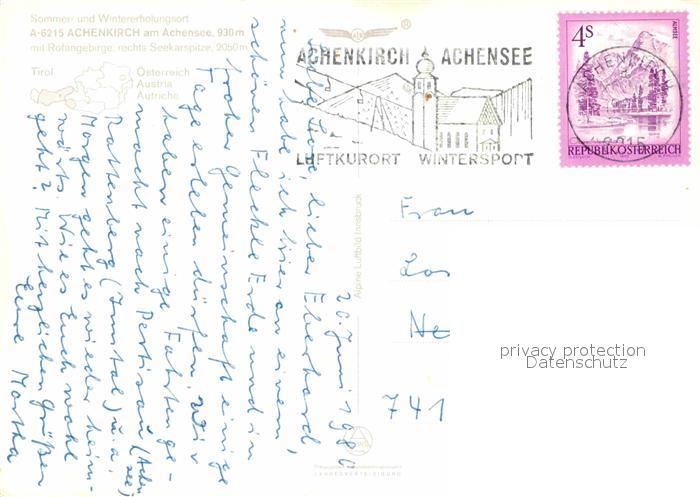 Sommer- und Wintererholungsort
A-6215 ACHENKIRCH am Achensee, 930 m
mit Rofangebirge, rechts Seekarspitze, 2050 m
Tirol
Österreich
Austria
Autriche
ACHENKIRCH ACHENSEE
LUFTKURORT WINTERSPORT
4 S
ALMSEE
REPUBLIK ÖSTERREICH
ACHENKIRCH
6215
20. Juni 1980
lieber Eberhard,
nun habe ich hier an einem
schönen Fleckle Erde und in
froher Gemeinschaft einige
Tage erleben dürfen. Wir
haben einige Fahrten ge-
macht nach Pertisau (Achensee)
Rattenberg (Inntal) u.a.
Morgen geht es wieder heim-
wärts. Wie es Euch wohl
geht? Mit herzlichen Grüßen
Eure Martha
Alpine Luftbild Innsbruck
Frau
741
privacy protection
Datenschutz